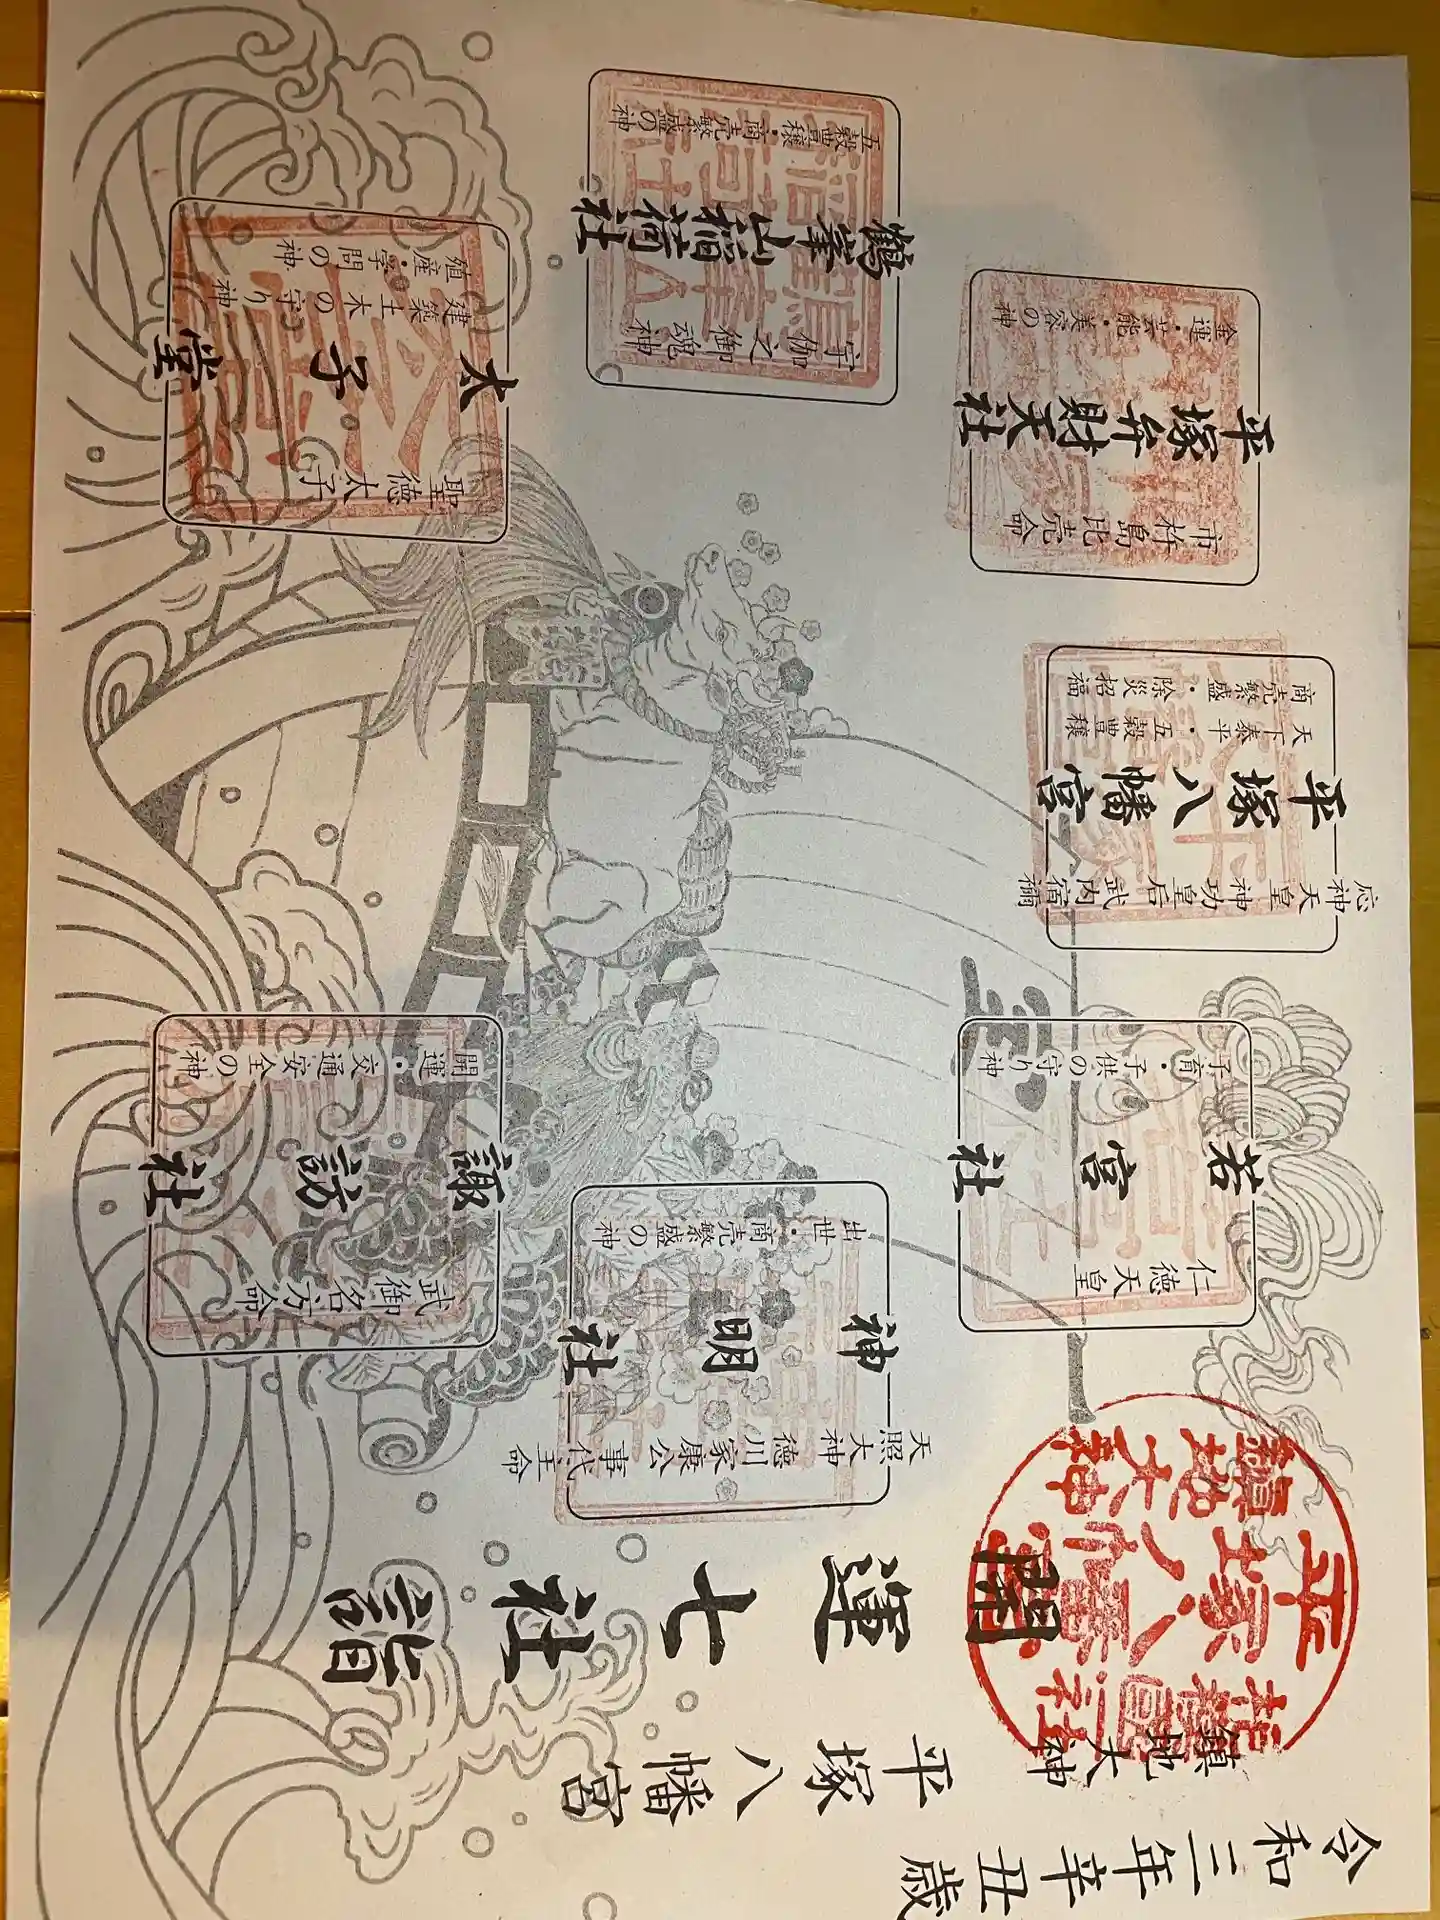 令和三年辛丑歳
鎮地大神
平塚八幡宮
開運七社詣
平塚八幡宮
鎮地大神
若宮社
子育・子供の守り神
仁徳天皇
神明社
出世・商売繁盛の神
天照大神
徳川家康公
事代主命
諏訪社
開運・交通安全の神
武御名方命
平塚八幡宮
商売繁盛・除災招福
天下泰平・五穀豊穣
応神天皇
神功皇后
武内宿禰
宝
平塚弁財天社
金運・芸能・美容の神
市杵島比売命
鶴峯山稲荷社
五穀豊穣・商売繁盛の神
宇伽之御魂神
太子堂
殖産・学問の神
建築土木の守り神
聖徳太子